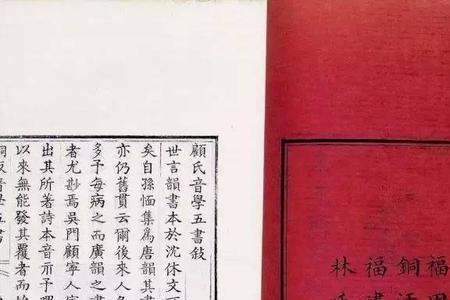 福田
銅活
福建
林氏
顧氏音學五書敘
世言韻書本於沈休文
矣自孫愐集為唐韻其書
亦仍舊貫云爾後來人
多予每病之而廣韻之書
者尤尠焉吳門顧寧人
出其所著詩本音示予喟
以來無能發其覆者而始
音學五書